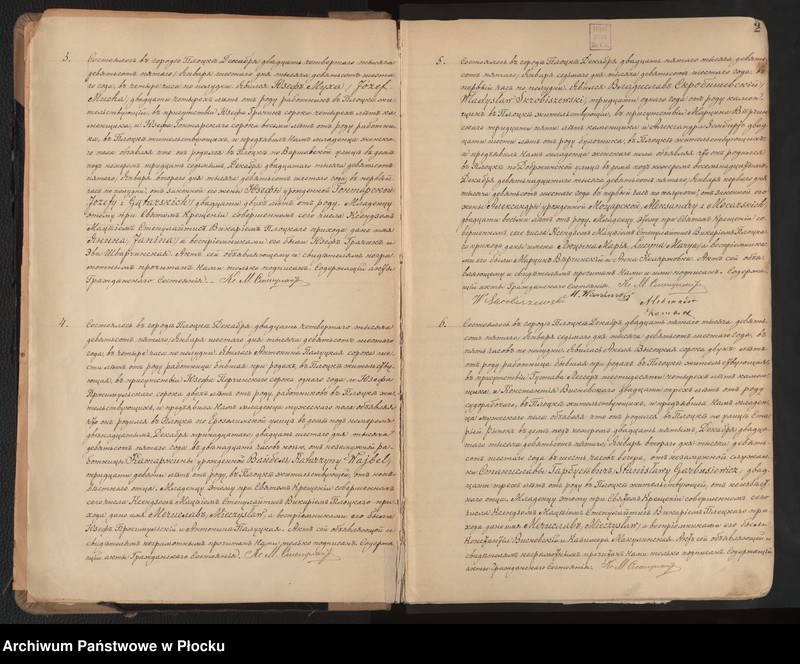 3. Состоялось въ городѣ Плоцкѣ Декабря двадцать четвертаго тысяча
девятьсотъ пятаго/Января шестаго дня тысяча девятьсотъ шеста-
го года, въ четыре часа по полудни. Явился Юзефъ Муха /Józef
Mucha/ двадцати четырехъ лѣтъ отъ роду работникъ въ Плоцкѣ жи-
тельствующій, въ присутствіи Юзефа
и Юзефа Гонтарскаго сорока восьми лѣтъ отъ роду работни-
ка, въ Плоцкѣ жительствующихъ, и предъявилъ Намъ младенца женска-
го пола объявляя что она родилась въ Плоцкѣ по Варшавской улицѣ въ домѣ
подъ номеромъ тридцать седьмымъ, Декабря двадцатаго тысяча девятьсотъ
пятаго/Января втораго дня тысяча девятьсотъ шестаго года, въ первый
часъ по полудни, отъ законной его жены Юзефы урожденной Гонтарской
Józefy z Gątarskich/ двадцати двухъ лѣтъ отъ роду. Младенцу
этому при Святомъ Крещеніи совершенномъ сего числа Ксендзомъ
Викаріемъ Плоцкаго прихода дано имя
Янина, Janina/ а воспріемниками его были Юзефъ и
Эва Шварчинская. Актъ сей объявляющему и свидѣтелямъ негра-
мотнымъ прочитанъ Нами только подписанъ. Содержащій акты
Гражданскаго Состоянія. Кс М.
4. Состоялось въ городѣ Плоцкѣ Декабря двадцать четвертаго тысяча
девятьсотъ пятаго/Января шестаго дня тысяча девятьсотъ шестаго
года, въ четыре часа по полудни. Явилась Антонина Палуцкая сорока
лѣтъ отъ роду работница бывшая при родахъ въ Плоцкѣ жительству-
ющая, въ присутствіи Юзефа сорока одного года, и Юзефа
сорока двухъ лѣтъ отъ роду, работниковъ въ Плоцкѣ жи-
тельствующихъ, и предъявила Намъ младенца мужескаго пола объявляя
что онъ родился въ Плоцкѣ по Іерозолимской улицѣ въ домѣ подъ номеромъ
двѣнадцатымъ, Декабря тринадцатаго/двадцать шестаго дня тысяча
девятьсотъ пятаго года въ двѣнадцать часовъ ночи, отъ незамужней ра-
ботницы Катаржины урожденной Вайбель, Katarzyny Wajbel,
тридцати девяти лѣтъ отъ роду, въ Плоцкѣ жительствующей, отъ неиз-
вѣстнаго отца. Младенцу этому при Святомъ Крещеніи совершенномъ
сего числа Ксендзомъ Викаріемъ Плоцкаго при-
хода дано имя Мечиславъ, Mieczysław, а воспріемниками его были
Юзефъ и Антонина Палуцкая. Актъ сей объявляющей и
свидѣтелямъ неграмотнымъ прочитанъ Нами только подписанъ. Содержа-
щій акты Гражданскаго Состоянія. Кс М.
2
5. Состоялось въ городѣ Плоцкѣ Декабря двадцать пятаго тысяча девять-
сотъ пятаго/Января седьмаго дня тысяча девятьсотъ шестаго года, въ
первый часъ по полудни. Явился Владиславъ Скробишевскій/
Władysław Skrobiszewski, тридцати одного года отъ роду камен-
щикъ въ Плоцкѣ жительствующій, въ присутствіи Марцина
тридцати пяти лѣтъ каменщика и Александра двад-
цати шести лѣтъ отъ роду въ Плоцкѣ жительствующихъ,
и предъявилъ Намъ младенца женскаго пола объявляя что она родилась
въ Плоцкѣ по Добжинской улицѣ въ домѣ подъ номеромъ
Декабря девятнадцатаго тысяча девятьсотъ пятаго/Января перваго дня
тысяча девятьсотъ шестаго года въ первый часъ по полуночи, отъ законной его
жены Александры урожденной Моцарской,
двадцати восьми лѣтъ отъ роду. Младенцу этому при Святомъ Крещеніи со-
вершенномъ сего числа Ксендзомъ Викаріемъ Плоцка-
го прихода даны имена Марія, а воспріемника-
ми его были Марцинъ и Анна Актъ сей объя-
вляющему и свидѣтелямъ прочитанъ Нами и ими подписанъ. Содержа-
щій акты Гражданскаго Состоянія. Кс М.
W Skrobiszewski
Aleksander
6. Состоялось въ городѣ Плоцкѣ Декабря двадцать пятаго тысяча девять-
сотъ пятаго/Января седьмаго дня тысяча девятьсотъ шестаго года, въ
пять часовъ по полудни. Явилась Анеля Высоцкая сорока двухъ лѣтъ
отъ роду работница бывшая при родахъ въ Плоцкѣ жительствующая,
въ присутствіи Густава шестидесяти четырехъ лѣтъ камен-
щика, и Константія Висневскаго двадцати трехъ лѣтъ отъ роду
въ Плоцкѣ жительствующихъ, и предъявила Намъ младен-
ца мужескаго пола объявляя что онъ родился въ Плоцкѣ по улицѣ Ста-
рый Рынокъ въ домѣ подъ номеромъ пятымъ, Декабря двадца-
таго тысяча девятьсотъ пятаго/Января втораго дня тысяча девять-
сотъ шестаго года въ шесть часовъ вечера, отъ незамужней служан-
ки Станиславы Гарбусевичъ, Stanisławy Garbusiewicz, двад-
цати трехъ лѣтъ отъ роду въ Плоцкѣ жительствующей, отъ неизвѣстна-
го отца. Младенцу этому при Святомъ Крещеніи совершенномъ сего
числа Ксендзомъ Викаріемъ Плоцкаго при-
хода дано имя Мечиславъ, Mieczysław, а воспріемниками его были
Константій Висневскій и Казимера Актъ сей объявляющей и
свидѣтелямъ неграмотнымъ прочитанъ Нами только подписанъ. Содержащій
акты Гражданскаго Состоянія. Кс М.
Archiwum Państwowe w Płocku